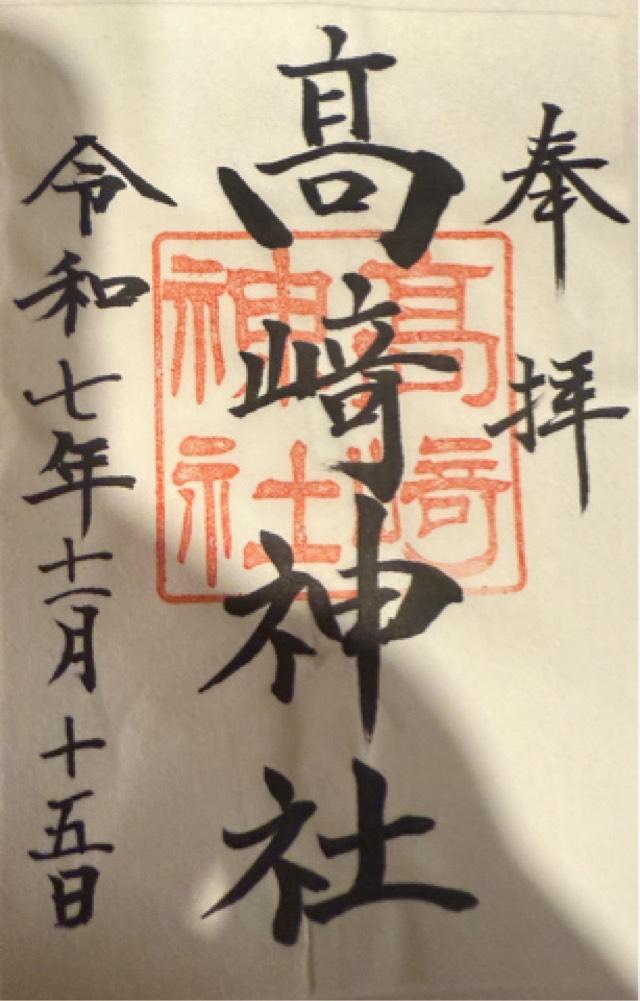 奉拝
髙﨑神社
高﨑神社
令和七年十一月十五日